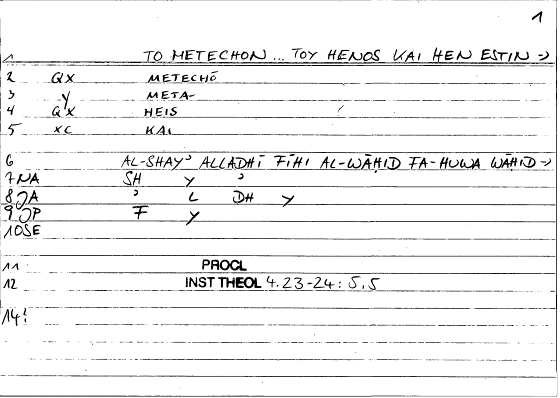 1
1 TO METECHON ... TOY HENOS KAI HEN ESTIN →
2 QX METECHŌ
3 Y META-
4 QX HEIS
5 XC KAI
6 AL-SHAYʾ ALLADHĪ FĪHI AL-WĀḤID FA-HUWA WĀḤID →
7 NA SH Y ʾ
8 JA ʾ L DH Y
9 JP F Y
10 SE
11 PROCL
12 INST THEOL 4.23-24: 5,5
14!